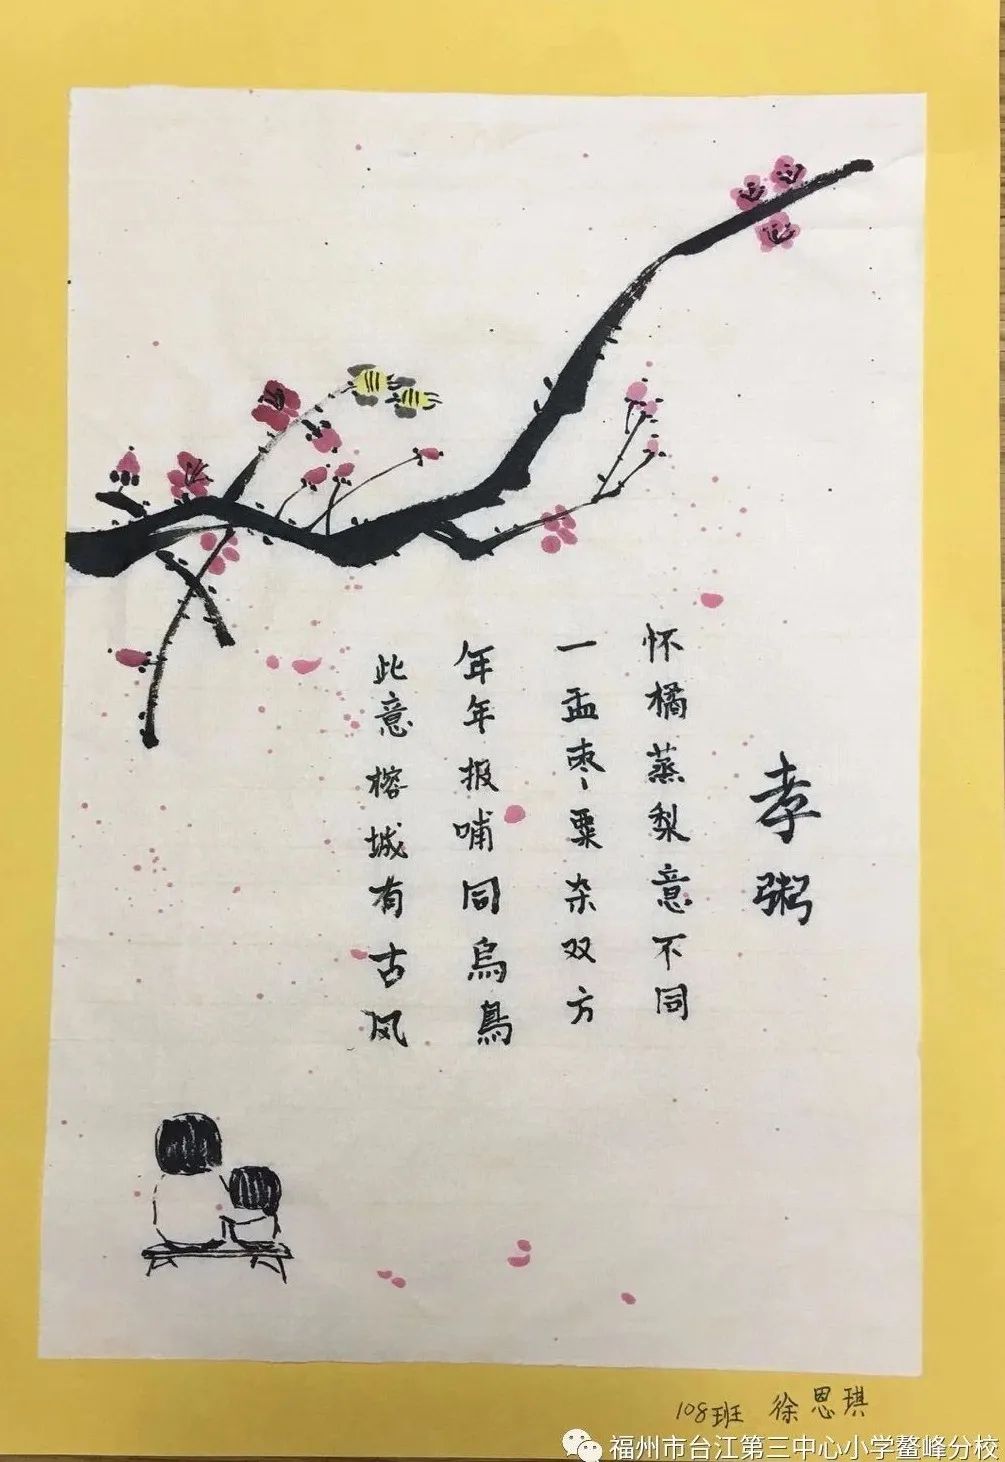 孝粥
怀橘蒸梨意不同
一盂枣粟杂双方
年年报哺同乌鳥
此意榕城有古风
108班 徐思琪
福州市台江第三中心小学鳌峰分校